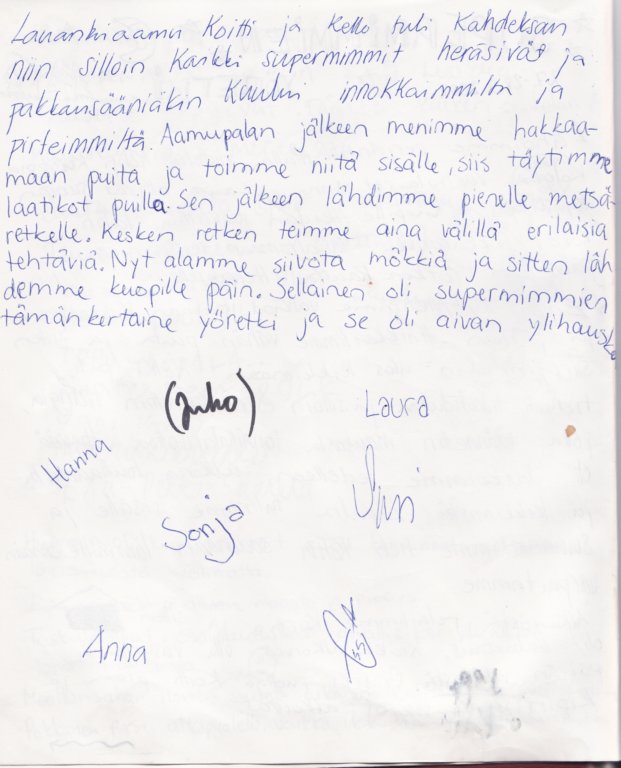 Lauantaiaamu koitti ja kello tuli kahdeksan
niin silloin kaikki supermimmit heräsivät ja
pakkausääniäkin kuului innokkaimmilta ja
pirteimmiltä. Aamupalan jälkeen menimme hakkaa-
maan puita ja toimme niitä sisälle, siis täytimme
laatikot puilla. Sen jälkeen lähdimme pienelle metsä-
retkelle. Kesken retken teimme aina välillä erilaisia
tehtäviä. Nyt alamme siivota mökkiä ja sitten läh
demme kuopille päin. Sellainen oli supermimmien
tämänkertaine yöretki ja se oli aivan ylihauska
(Juho)
Laura
Hanna
Sonja
Anna